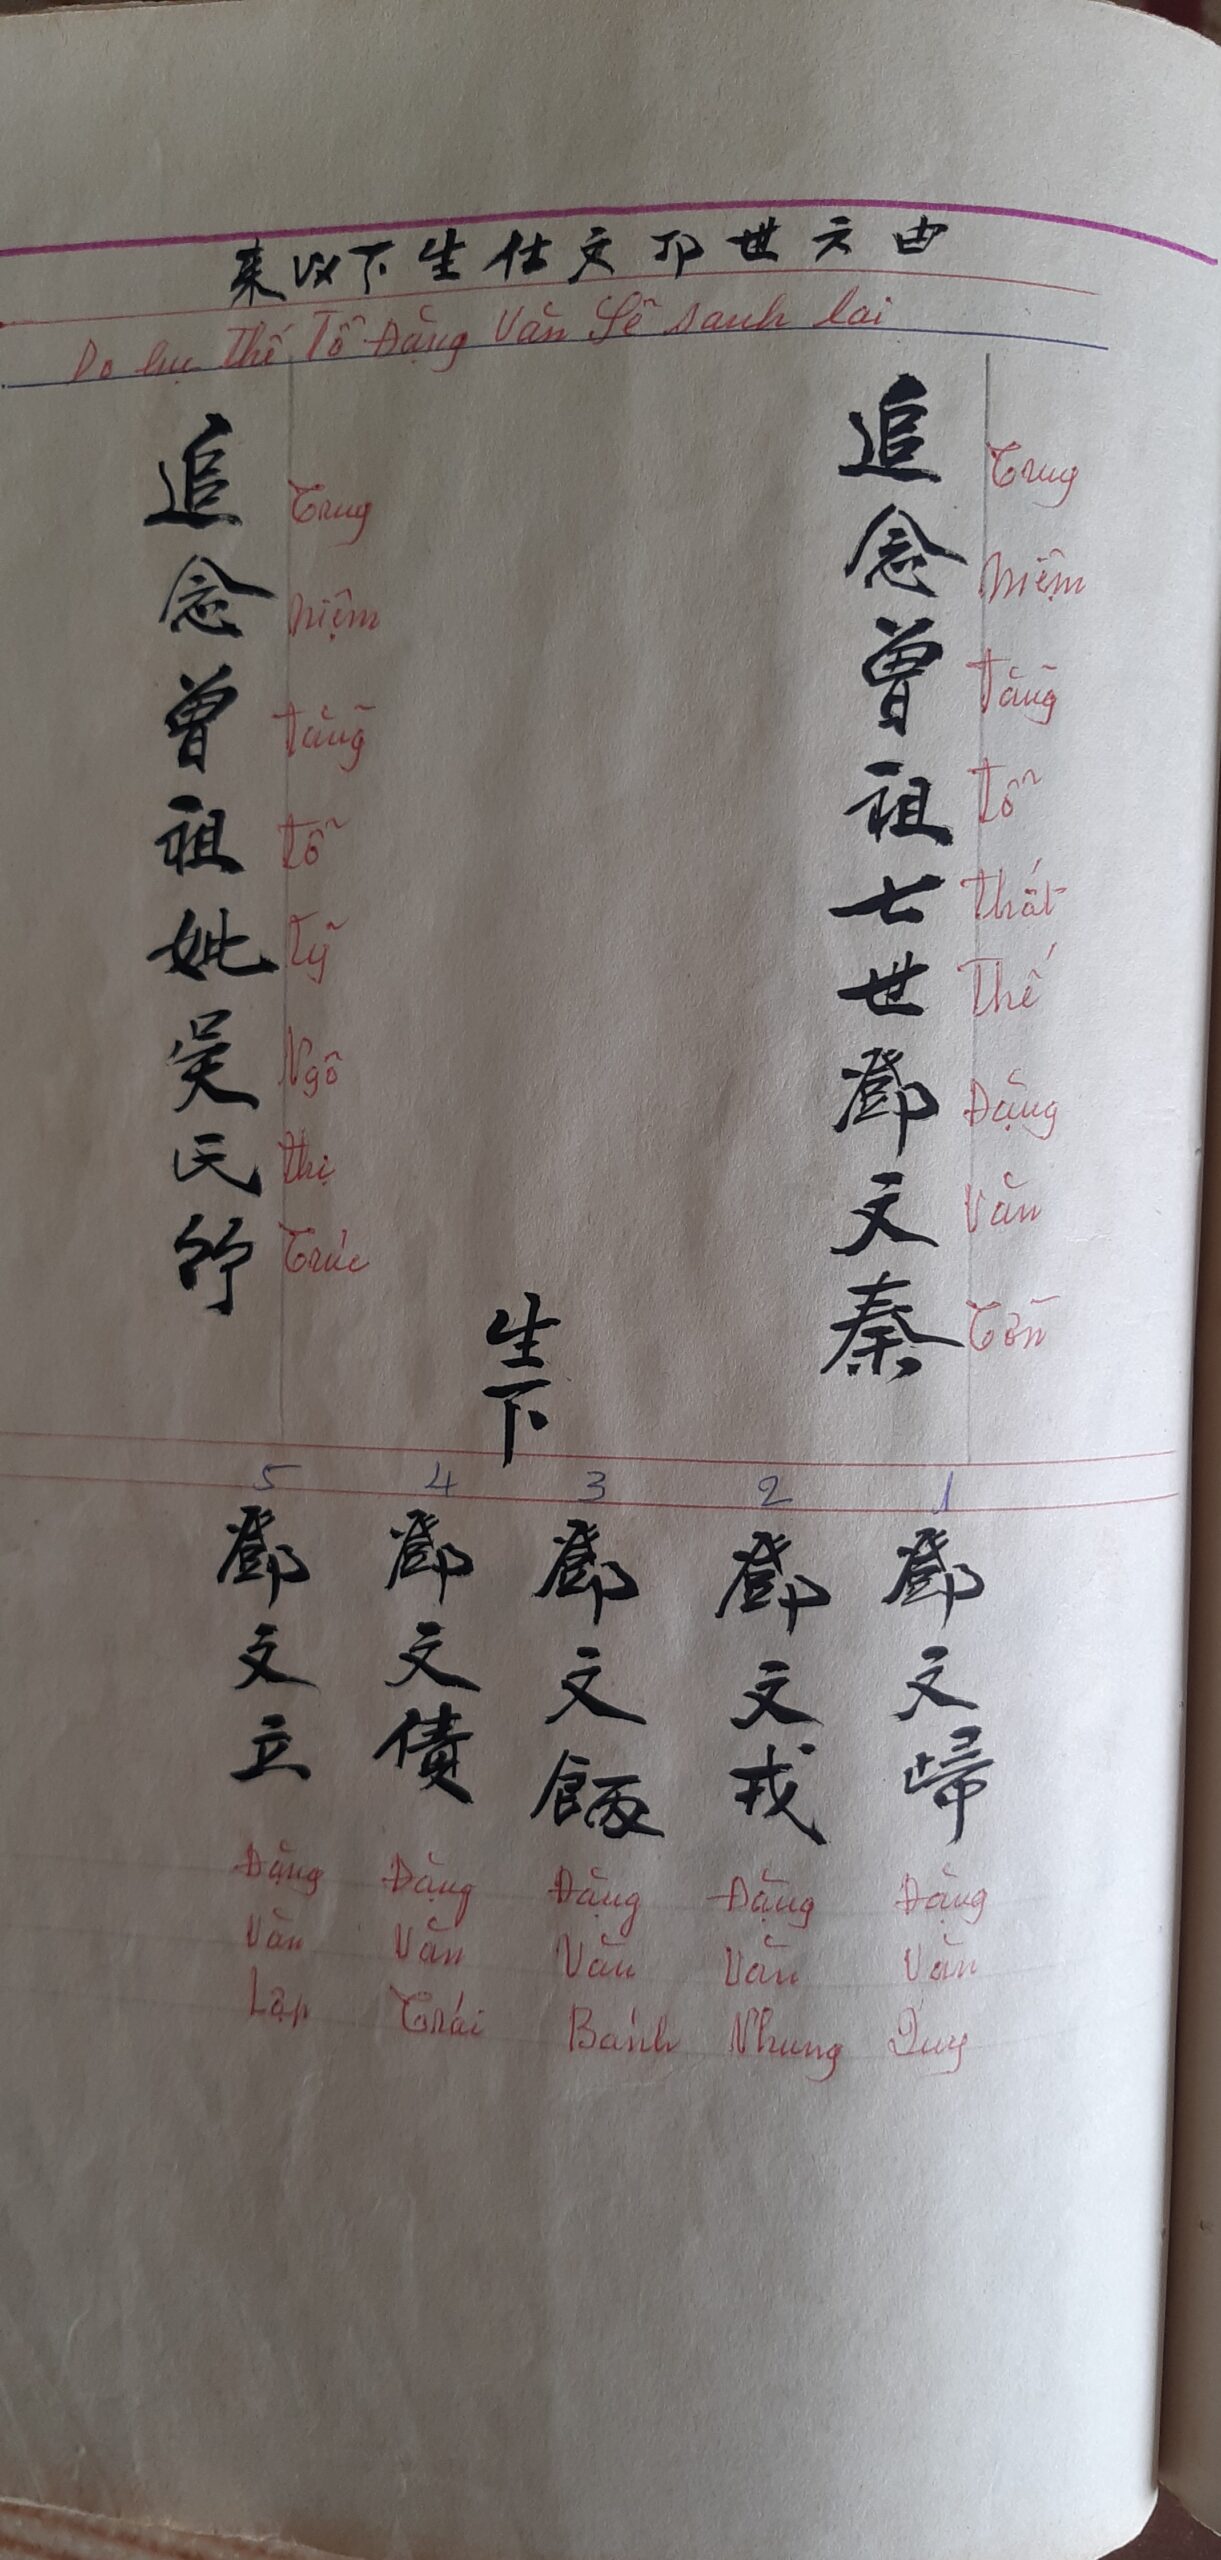 由六世邓文仕生下以来
Do lục Thế Tổ Đặng Văn Sễ sanh lai
追念曾祖七世鄧文秦
Truy Niệm Tằng Tỗ Thất Thế Đặng Văn Tần
追念曾祖妣吳氏竹
Truy Niệm Tằng Tỗ Tỹ Ngô Thị Trúc
生下
1 2 3 4 5
鄧文歸
鄧文戎
鄧文飯
鄧文債
鄧文立
Đặng Văn Quy
Đặng Văn Nhung
Đặng Văn Bánh
Đặng Văn Trái
Đặng Văn Lập